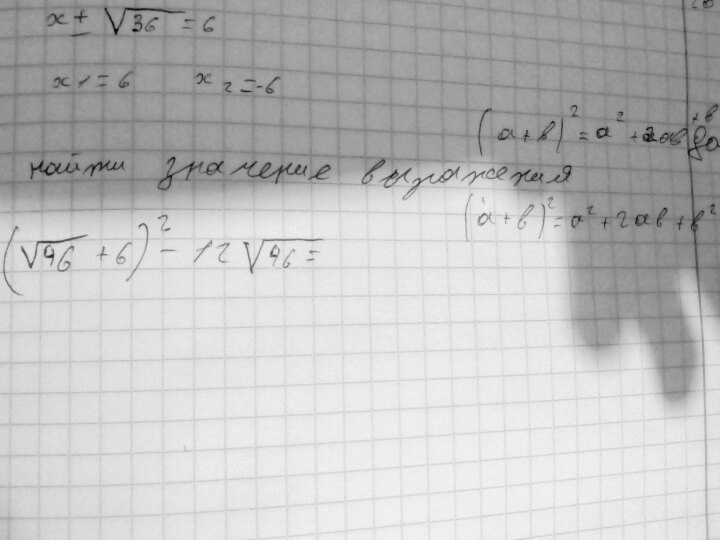 x ± √36 = 6
x 1 = 6 x 2 = -6
(a+b)² = a² + 2ab
найти значение выражения
(a+b)² = a² + 2ab + b²
(√46 + 6)² - 12 √46 =